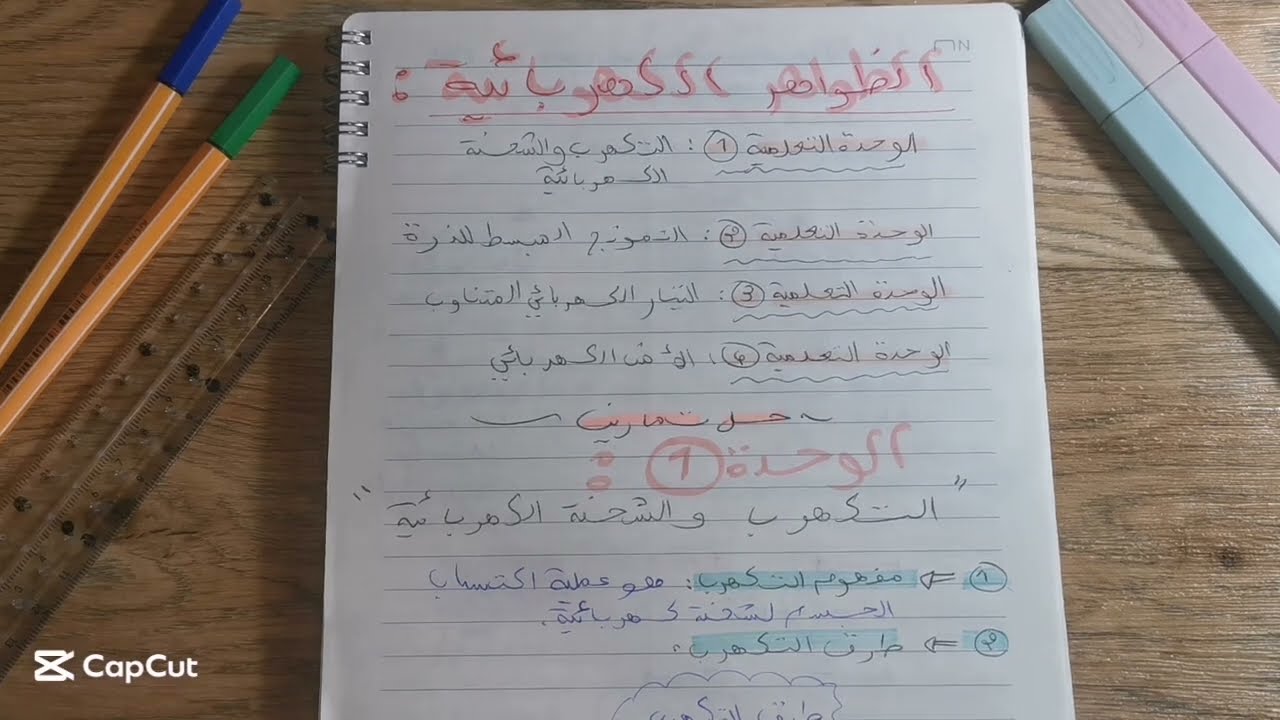 الظواهر الكهربائية :
الوحدة التعلمية ① : التكهرب والشحنة
الكهربائية
الوحدة التعلمية ② : النموذج المبسط للذرة
الوحدة التعلمية ③ : التيار الكهربائي المتناوب
الوحدة التعلمية ④ : الأمن الكهربائي
~ حل تمارين ~
الوحدة ① :
" التكهرب والشحنة الكهربائية "
① ⇐ مفهوم التكهرب : هو عملية اكتساب
الجسم لشحنة كهربائية .
② ⇐ طرق التكهرب :
طرق التكهرب
CapCut